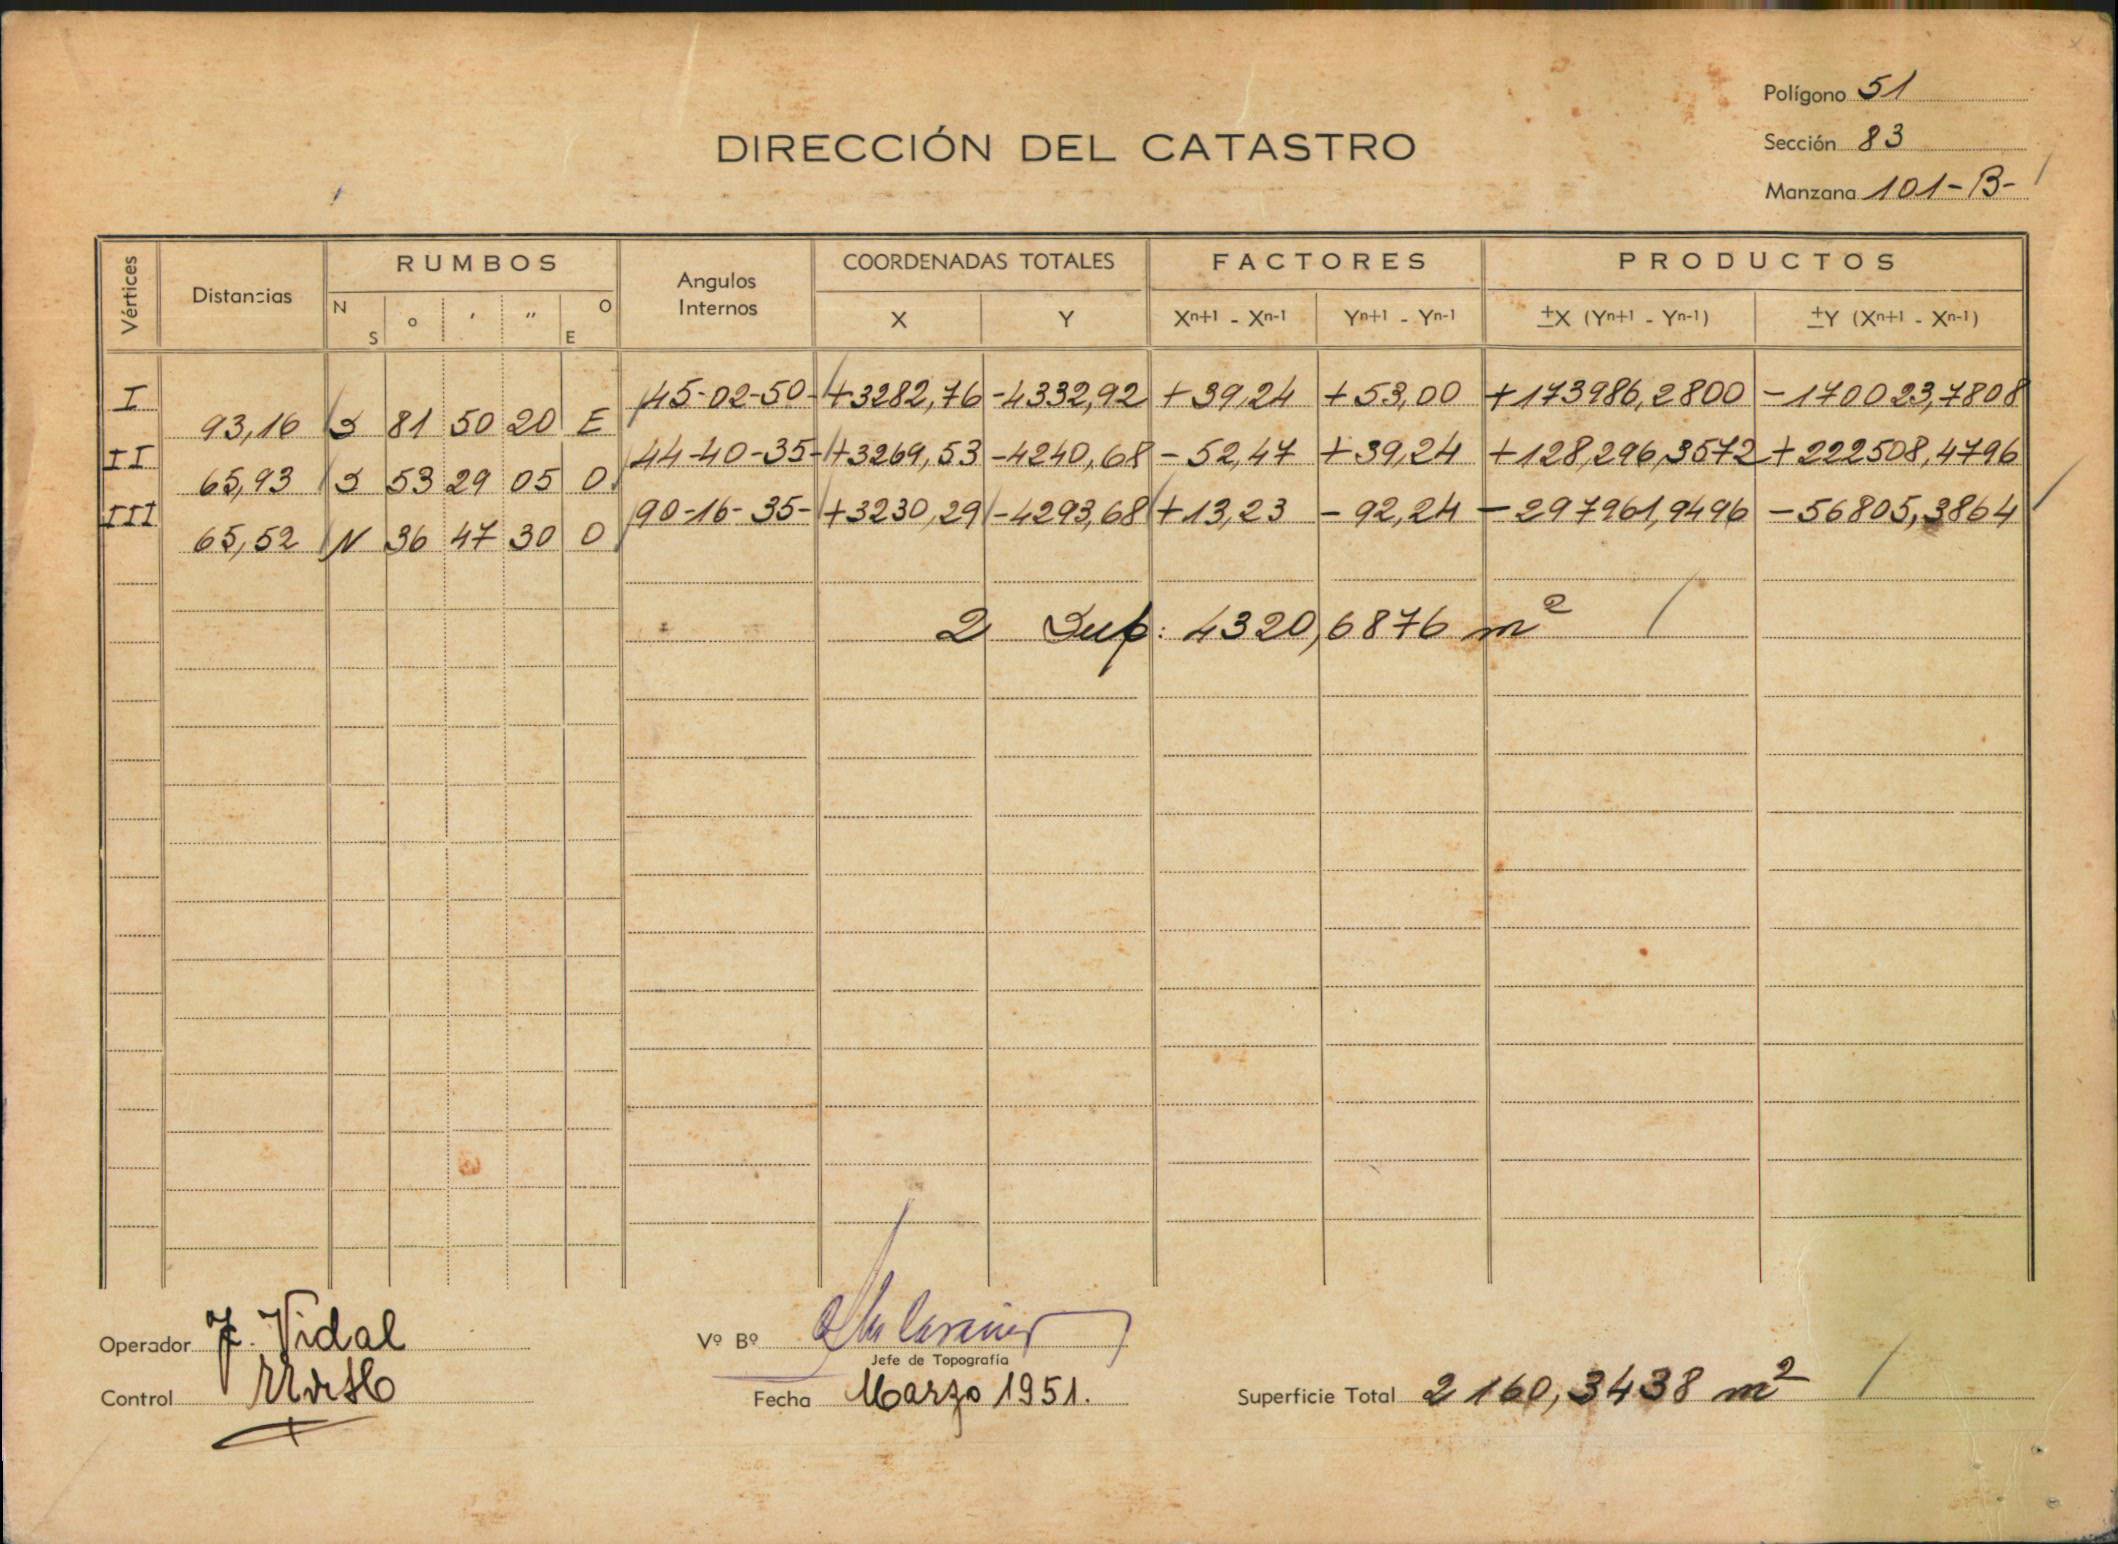 Polígono 51
DIRECCIÓN DEL CATASTRO
Sección 83
Manzana 101-B-
Vértices Distancias RUMBOS Angulos Internos COORDENADAS TOTALES FACTORES PRODUCTOS
N S o ' " O E X Y Xn+1 - Xn-1 Yn+1 - Yn-1 ±X (Yn+1 - Yn-1) ±Y (Xn+1 - Xn-1)
I 45-02-50- +3282,76 -4332,92 +39,24 +53,00 +173986,2800 -170023,7808
93,16 S 81 50 20 E
II 44-40-35- +3269,53 -4240,68 -52,47 +39,24 +128,296,3572 +222508,4796
65,93 S 53 29 05 O
III 90-16-35- +3230,29 -4293,68 +13,23 -92,24 -297961,9496 -56805,3864
65,52 N 36 47 30 O
2 Sup: 4320,6876 m²
Operador J. Vidal
Vº Bº
Jefe de Topografía
Control
Fecha Marzo 1951.
Superficie Total 2160,3438 m²